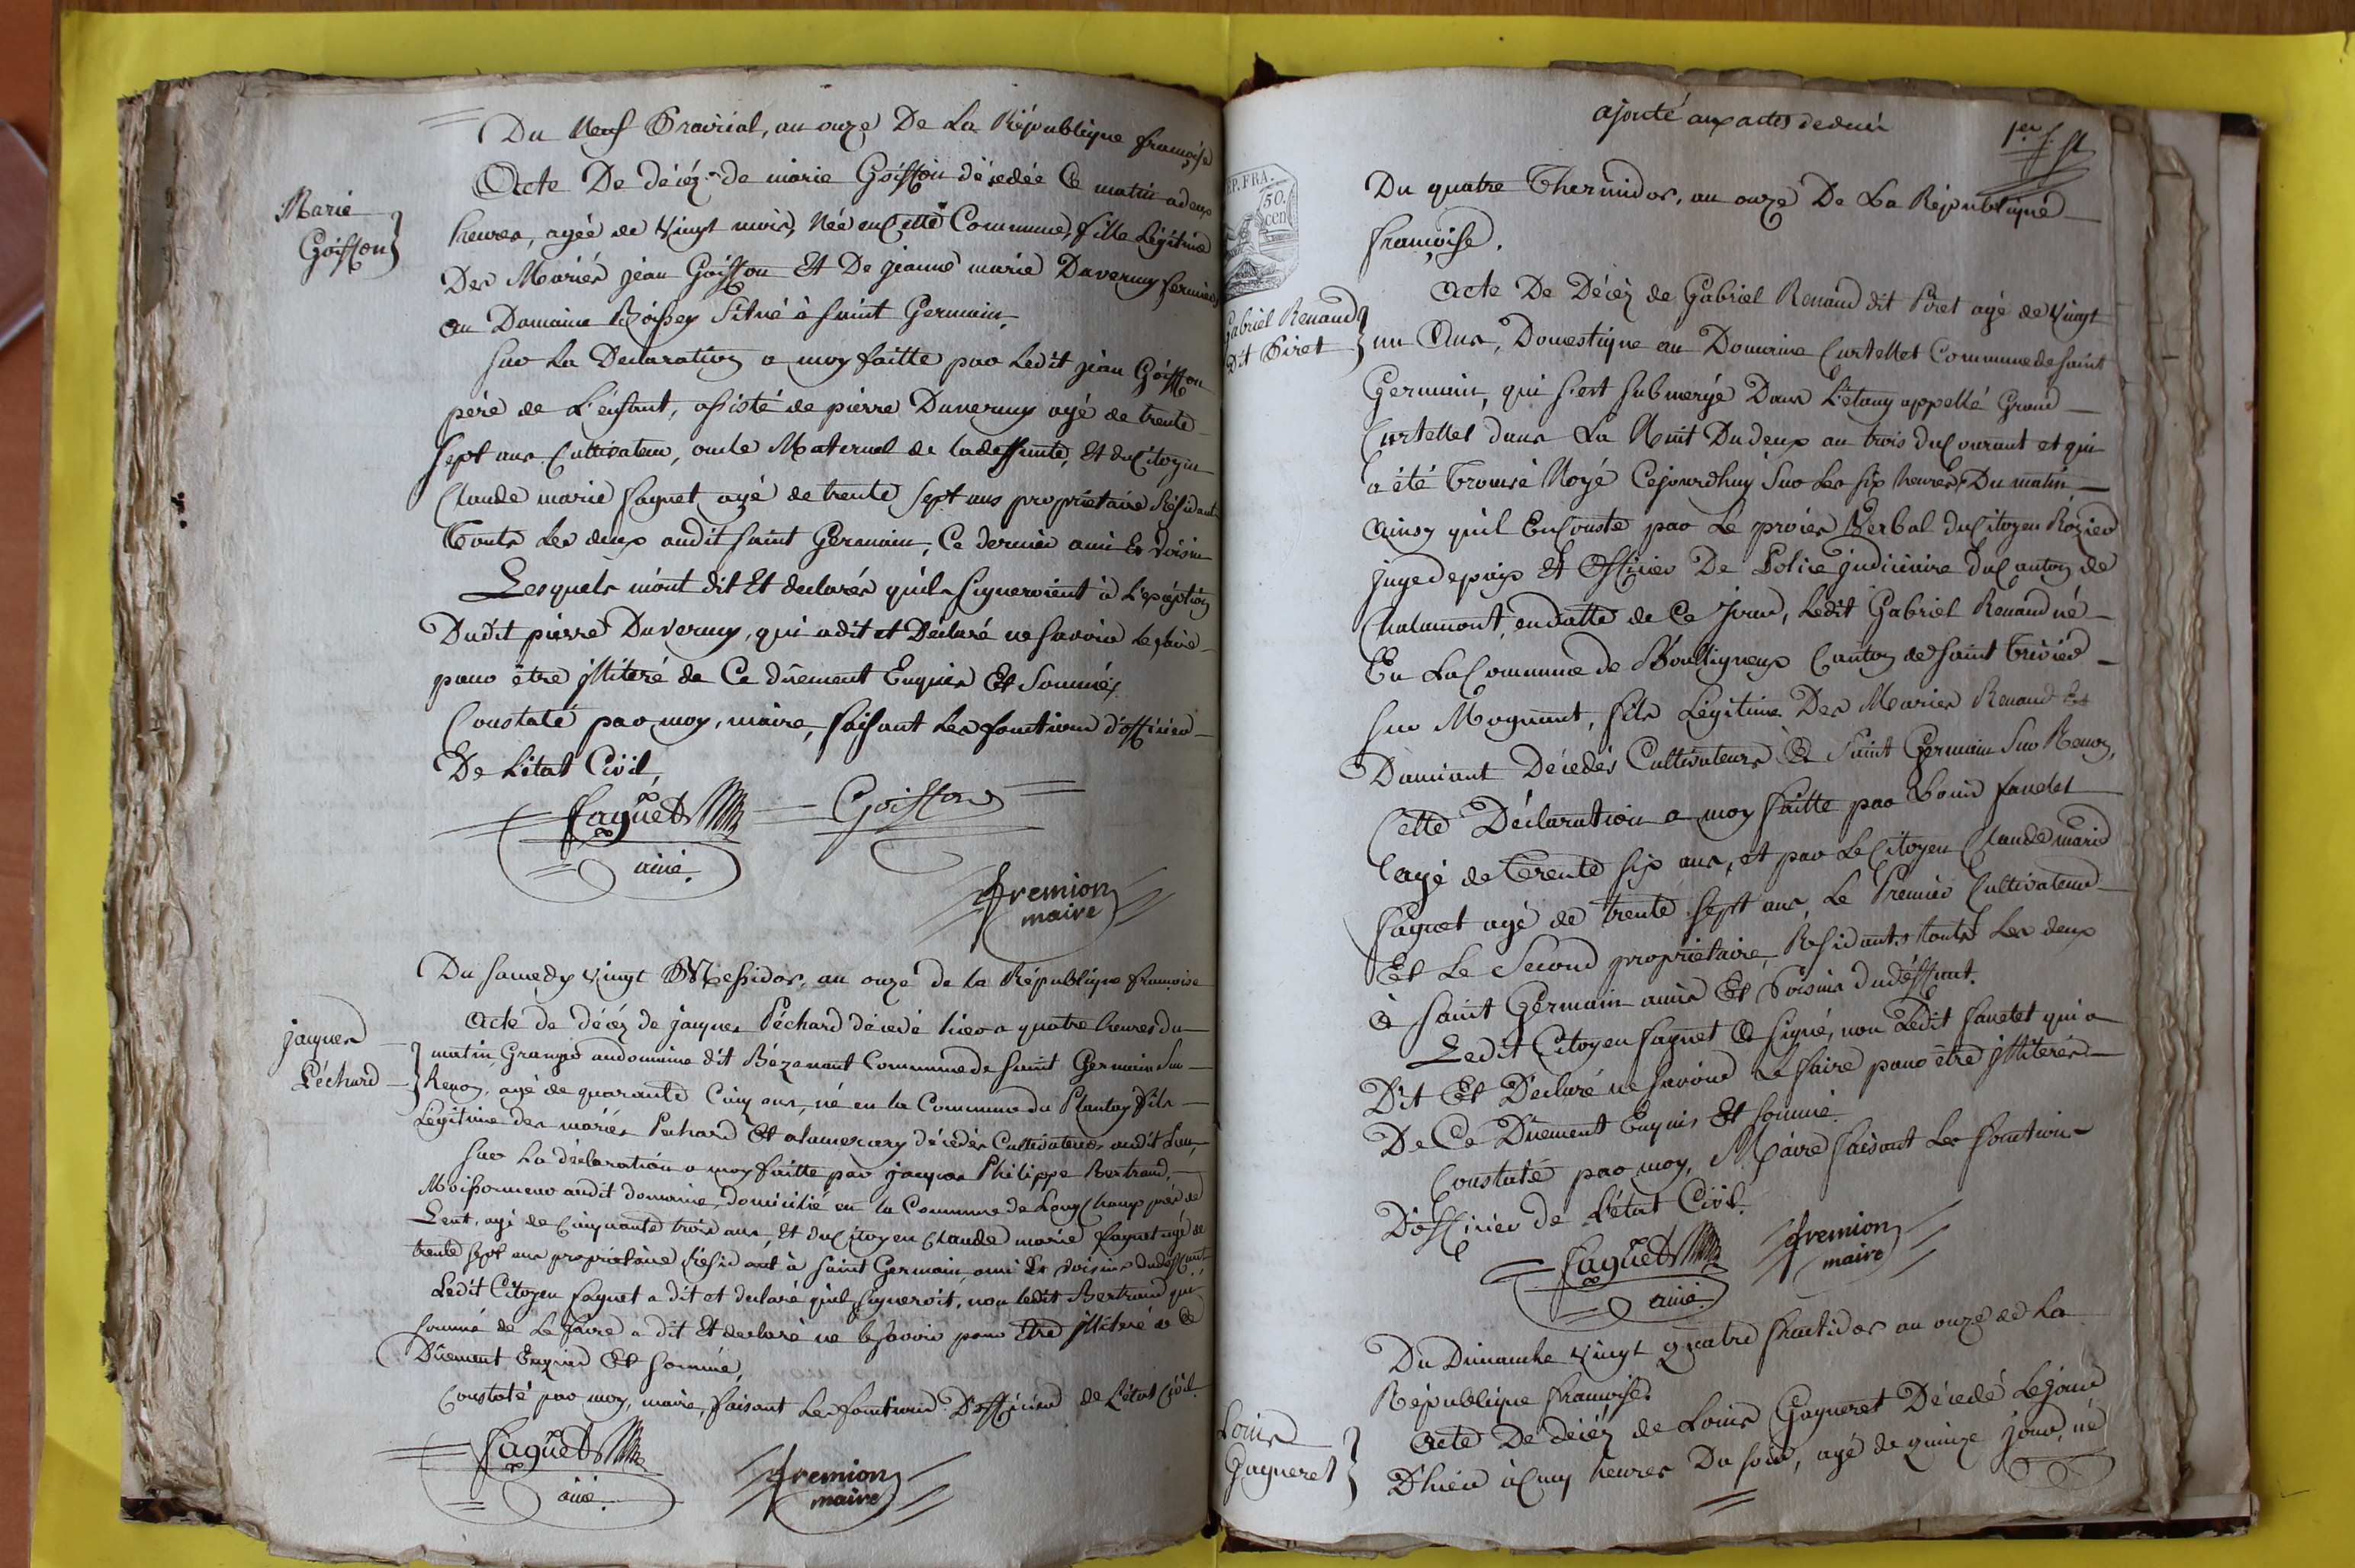 Du Neuf Prairial, an onze De La République françoise
Marie
Goiffon
Acte De décéz de marie Goiffon décedée Ce matin a deux
heures, agée de Vingt mois, Née en Cette Commune, fille Légitime
Des Mariés jean Goiffon Et De jeanne marie Duverney fermiers
au Domaine Boissey Situé à saint Germain,
sur La Declaration a moy faitte par Ledit jean Goiffon
pére de L'enfant, assisté de pierre Duverney agé de trente
sept ans Cultivateur, oncle Maternel de la deffunte, Et du Citoyen
Claude marie faguet agé de trente sept ans propriétaire Résidants
touts Les deux audit saint Germain, Ce dernier ami Et Voisin
Lesquels m'ont dit Et declarés qu'ils signeroient à L'exception
Dudit pierre Duverney, qui a dit et Déclaré ne savoir Le faire
pour être illiteré de Ce dûement Enquis Et Sommés
Constaté par moy, maire, faisant Les fonctions d'officier
De L'état Civil,
faguet Goiffon
ainé.
fremion
maire
Du samedy Vingt Messidor, an onze de la République françoise
jacques
Péchard
Acte de décéz de jacques Péchard décedé hier a quatre heures du
matin, Granger au domaine dit Bézenant Commune de saint Germain Sur
Renon, agé de quarante Cinq ans, né en la Commune du Plantay fils
Légitime des mariés Pechard Et alamercery décedés Cultivateurs audit Lieu,
sur La déclaration a moy faitte par jacques Philippe Bertrand,
Moissonneur audit domaine, domicilié en la Commune de Longchamp près de
Lent, agé de Cinquante trois ans, Et du Citoyen Claude marie faguet agé de
trente sept ans propriétaire Résidant à saint Germain, ami Et Voisins dudeffunt,
Ledit Citoyen faguet a dit et declaré qu'il signeroit, non ledit Bertrand qui
sommé de Le faire a dit Et declaré ne le savoir pour Etre illiteré de Ce
Dûement Enquis Et sommé,
Constaté par moy, maire, faisant Les fonctions D'officier de L'état Civil.
faguet
ainé.
fremion
maire
ajouté aux actes de deces
1er
REP. FRA.
50.
cen
Du quatre Thermidor, an onze De La République
françoise.
Gabriel Renaud
Dit Piret
Acte De Décéz de Gabriel Renaud dit Piret agé de Vingt
un Ans, Domestique au Domaine Curtellet Commune de saint
Germain, qui s'est submergé Dans L'étang appellé Grand
Curtellet dans La Nuit Du deux au trois du Courant et qui
a été trouvé Noyé Cejourdhuy Sur Les six heures Du matin,
Ainsy qu'il En Conste par Le procès Verbal du Citoyen Rozier
juge de paix Et Officier De Police judiciaire du Canton de
Chalamont, en datte de Ce jour, Ledit Gabriel Renaud né
En La Commune de Bouligneux Canton de saint trivier
sur Mognant, fils Légitime Des Mariés Renaud Et
Damiant Décedés Cultivateurs à Saint Germain Sur Renon,
Cette Déclaration a moy faitte par Louis fandet
agé de trente six ans, et par Le Citoyen Claude marie
faguet agé de trente sept ans, Le Premier Cultivateur
Et Le Second propriétaire, Residants touts Les deux
à saint Germain amis Et Voisins dudeffunt.
Ledit Citoyen faguet a signé, non Ledit fandet qui a
Dit Et Declaré ne savoir Le faire pour être illiteré
De Ce Dûement Enquis Et sommé
Constaté par moy, Maire faisant Les fonctions
D'officier de L'état Civil.
faguet
ainé.
fremion
maire
Du Dimanche Vingt quatre fructidor an onze de La
République françoise
Louis
Gagneret
Acte De décéz de Louis Gagneret Décedé Le jour
D'hier à Cinq heures Du soir, agé de quinze jours, né